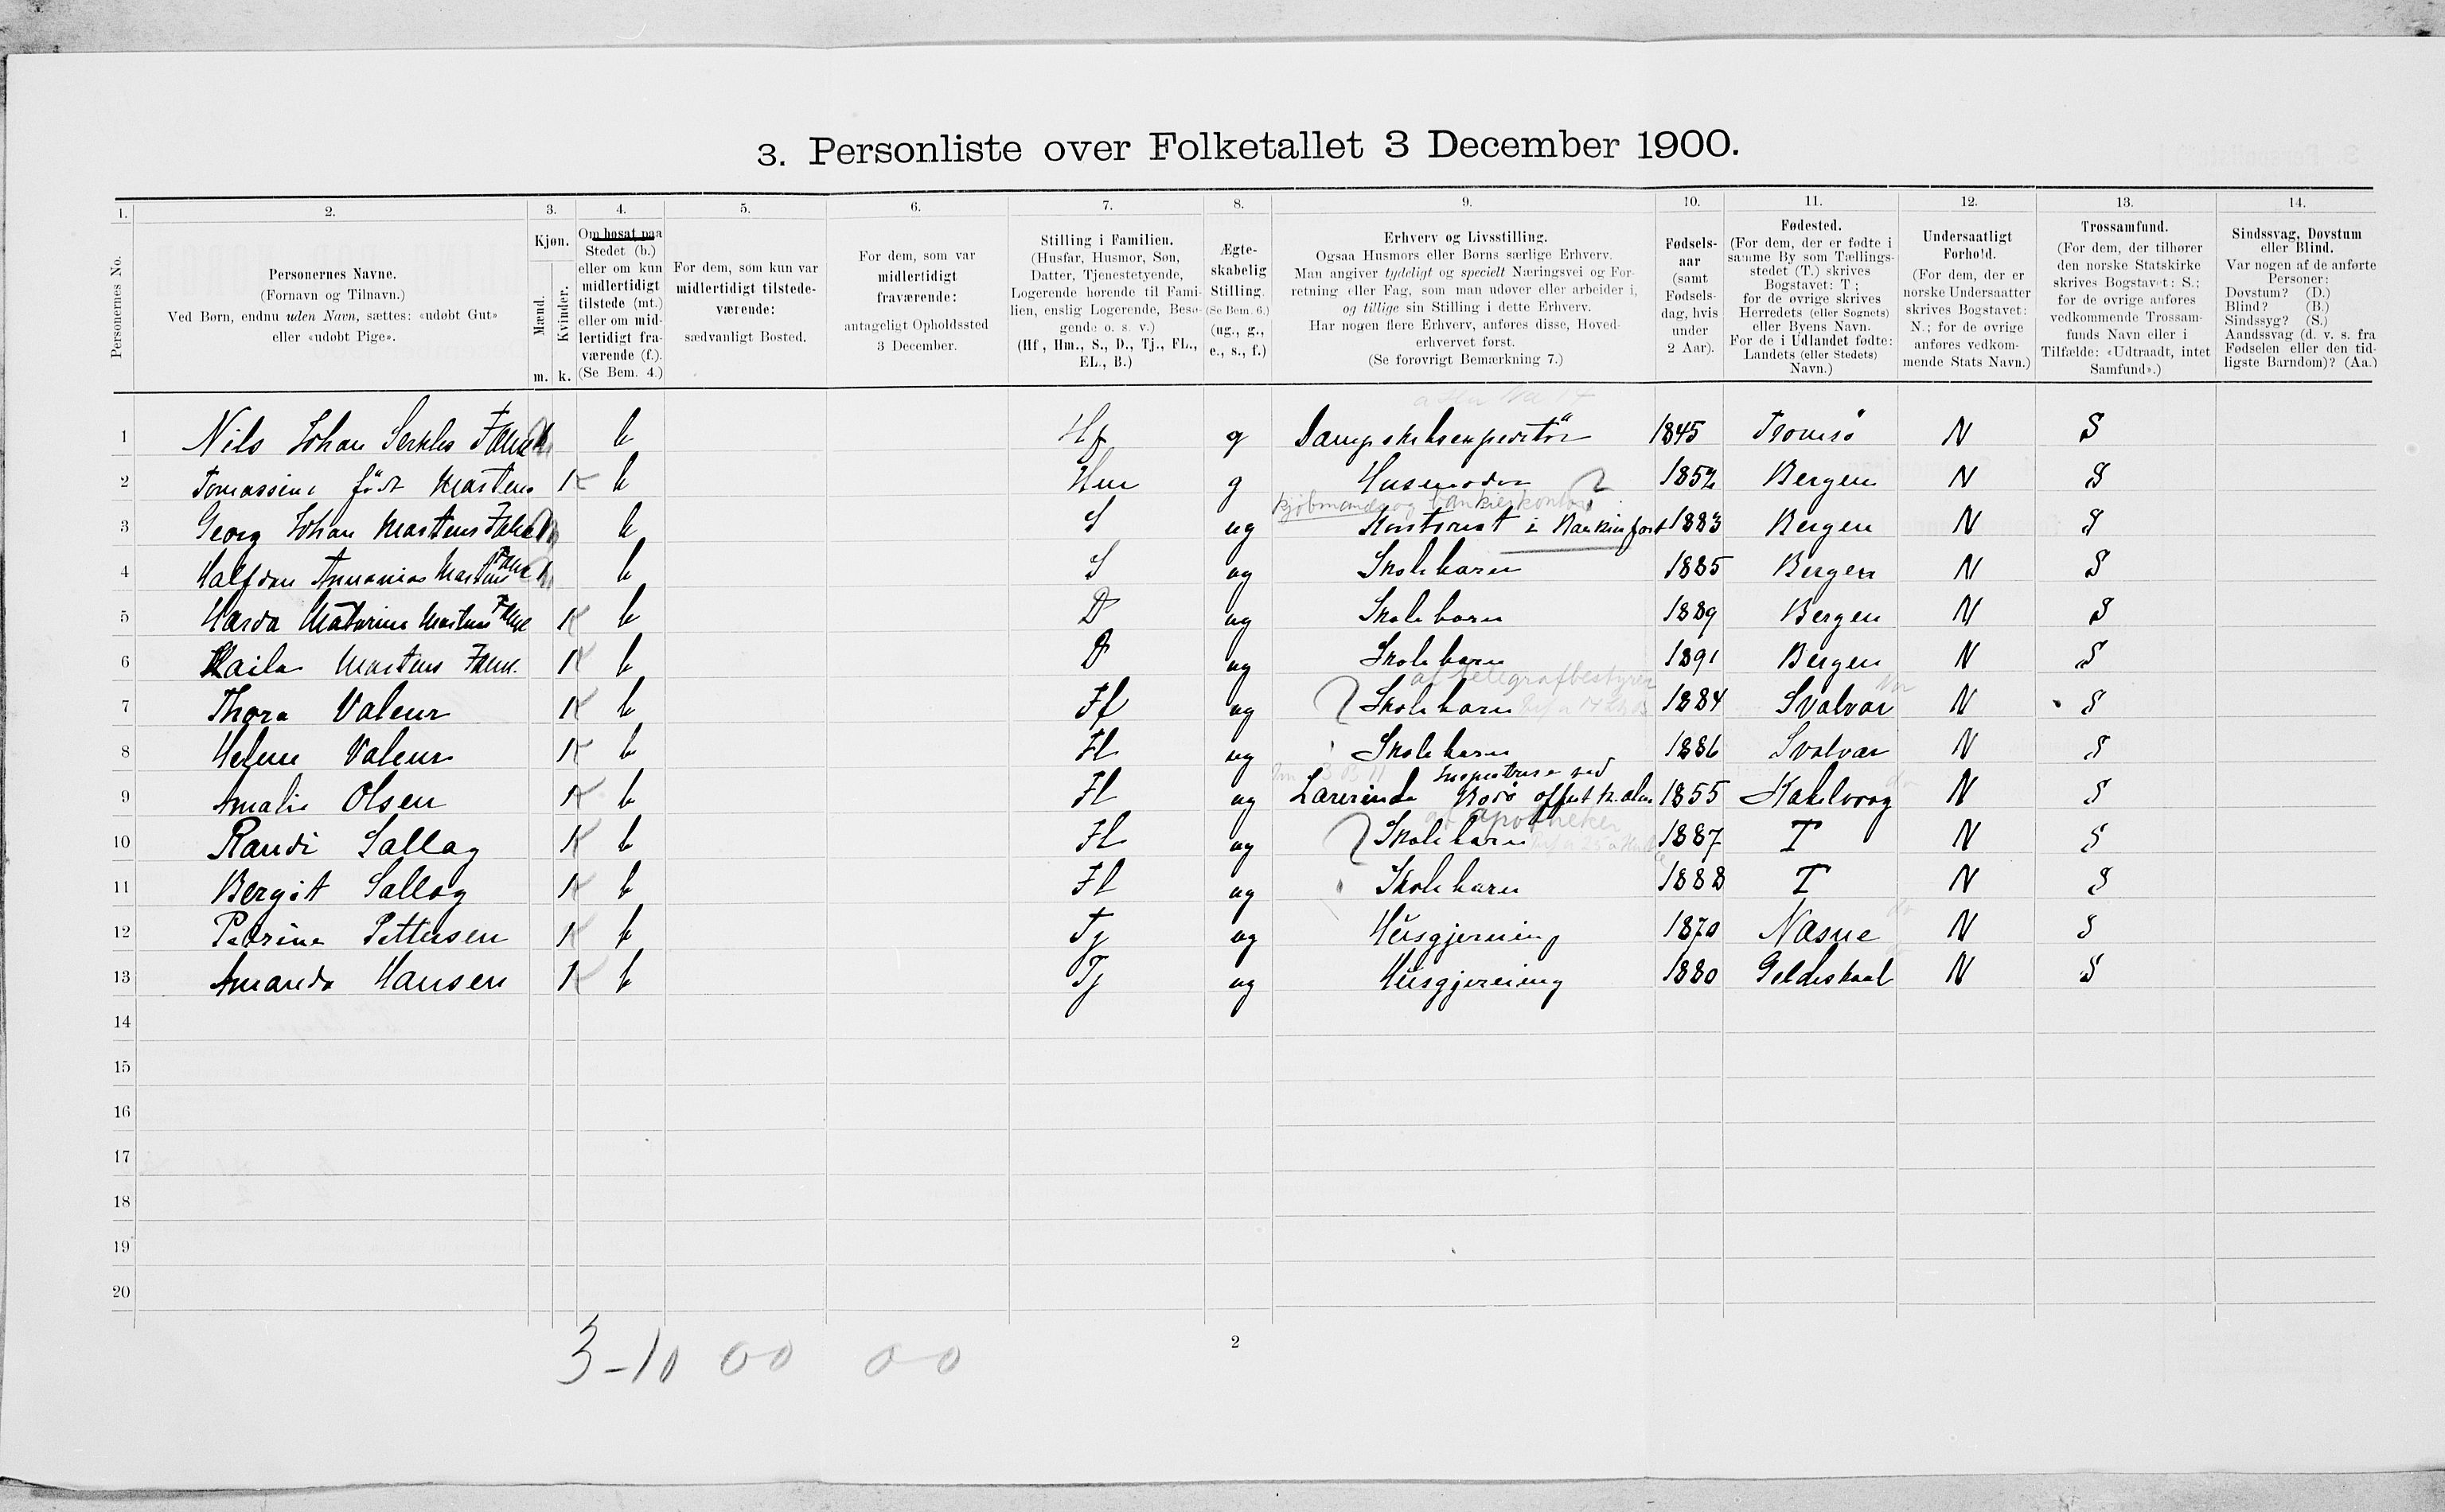 3. Personliste over Folketallet 3 December 1900.
1. 2. 3. 4. 5. 6. 7. 8. 9. 10. 11. 12. 13. 14.
Personernes No.
Personernes Navne.
(Fornavn og Tilnavn.)
Ved Børn, endnu uden Navn, sættes: «udøbt Gut»
eller «udøbt Pige».
Kjøn.
Mænd.
Kvinder.
m. k.
Om bosat paa
Stedet (b.)
eller om kun
midlertidigt
tilstede (mt.)
eller om mid-
lertidigt fra-
værende (f.).
(Se Bem. 4.)
For dem, som kun var
midlertidigt tilstede-
værende:
sædvanligt Bosted.
For dem, som var
midlertidigt
fraværende:
antageligt Opholdssted
3 December.
Stilling i Familien.
(Husfar, Husmor, Søn,
Datter, Tjenestetyende,
Logerende hørende til Fami-
lien, enslig Logerende, Besø-
gende o. s. v.)
(Hf., Hm., S., D., Tj., FL.,
EL., B.)
Ægte-
skabelig
Stilling.
(Se Bem. 6.)
(ug., g.,
e., s., f.)
Erhverv og Livsstilling.
Ogsaa Husmors eller Børns særlige Erhverv.
Man angiver tydeligt og specielt Næringsvei og For-
retning eller Fag, som man udøver eller arbeider i,
og tillige sin Stilling i dette Erhverv.
Har nogen flere Erhverv, anføres disse, Hoved-
erhvervet først.
(Se forøvrigt Bemærkning 7.)
Fødsels-
aar
(samt
Fødsels-
dag, hvis
under
2 Aar).
Fødested.
(For dem, der er fødte i
samme By som Tællings-
stedet (T.) skrives
Bogstavet: T;
for de øvrige skrives
Herredets (eller Sognets)
eller Byens Navn.
For de i Udlandet fødte:
Landets (eller Stedets)
Navn.)
Undersaatligt
Forhold.
(For dem, der er
norske Undersaatter
skrives Bogstavet:
N.; for de øvrige
anføres vedkom-
mende Stats Navn.)
Trossamfund.
(For dem, der tilhører
den norske Statskirke
skrives Bogstavet: S.;
for de øvrige anføres
vedkommende Trossam-
funds Navn eller i
Tilfælde: «Udtraadt, intet
Samfund».)
Sindssvag, Døvstum
eller Blind.
Var nogen af de anførte
Personer:
Døvstum? (D.)
Blind? (B.)
Sindssyg? (S.)
Aandssvag (d. v. s. fra
Fødselen eller den tid-
ligste Barndom)? (Aa.)
1 Nils Johan b Hf g Dampskibsexpeditør 1845 Tromsø N S
2 født Martens K b Hm g Husmoder 1852 Bergen N S
kjøbmands og bankierkontor
3 Georg Johan Martens b S ug Kontorist i 1883 Bergen N S
4 Halfdan Martens b S ug Skolebarn 1885 Bergen N S
5 Martens K b D ug Skolebarn 1889 Bergen N S
6 Martens K b D ug Skolebarn 1891 Bergen N S
af telegrafbestyrer
7 Thora Valeur K b Fl ug Skolebarn 1884 Svolvær N S
8 Helene Valeur K b Fl ug Skolebarn 1886 Svolvær N S
Inspektrise ved
9 Amalie Olsen K b Fl ug Lærerinde Bodø 1855 N S
af apotheker
10 Randi K b Fl ug Skolebarn 1887 T N S
11 Bergit K b Fl ug Skolebarn 1888 T N S
12 Petrine Pettersen K b Tj ug Husgjerning 1870 Næsne N S
13 Amanda Hansen K b Tj ug Husgjerning 1880 Gildeskaal N S
14
15
16
17
18
19
20
3-10 00 0-0
2